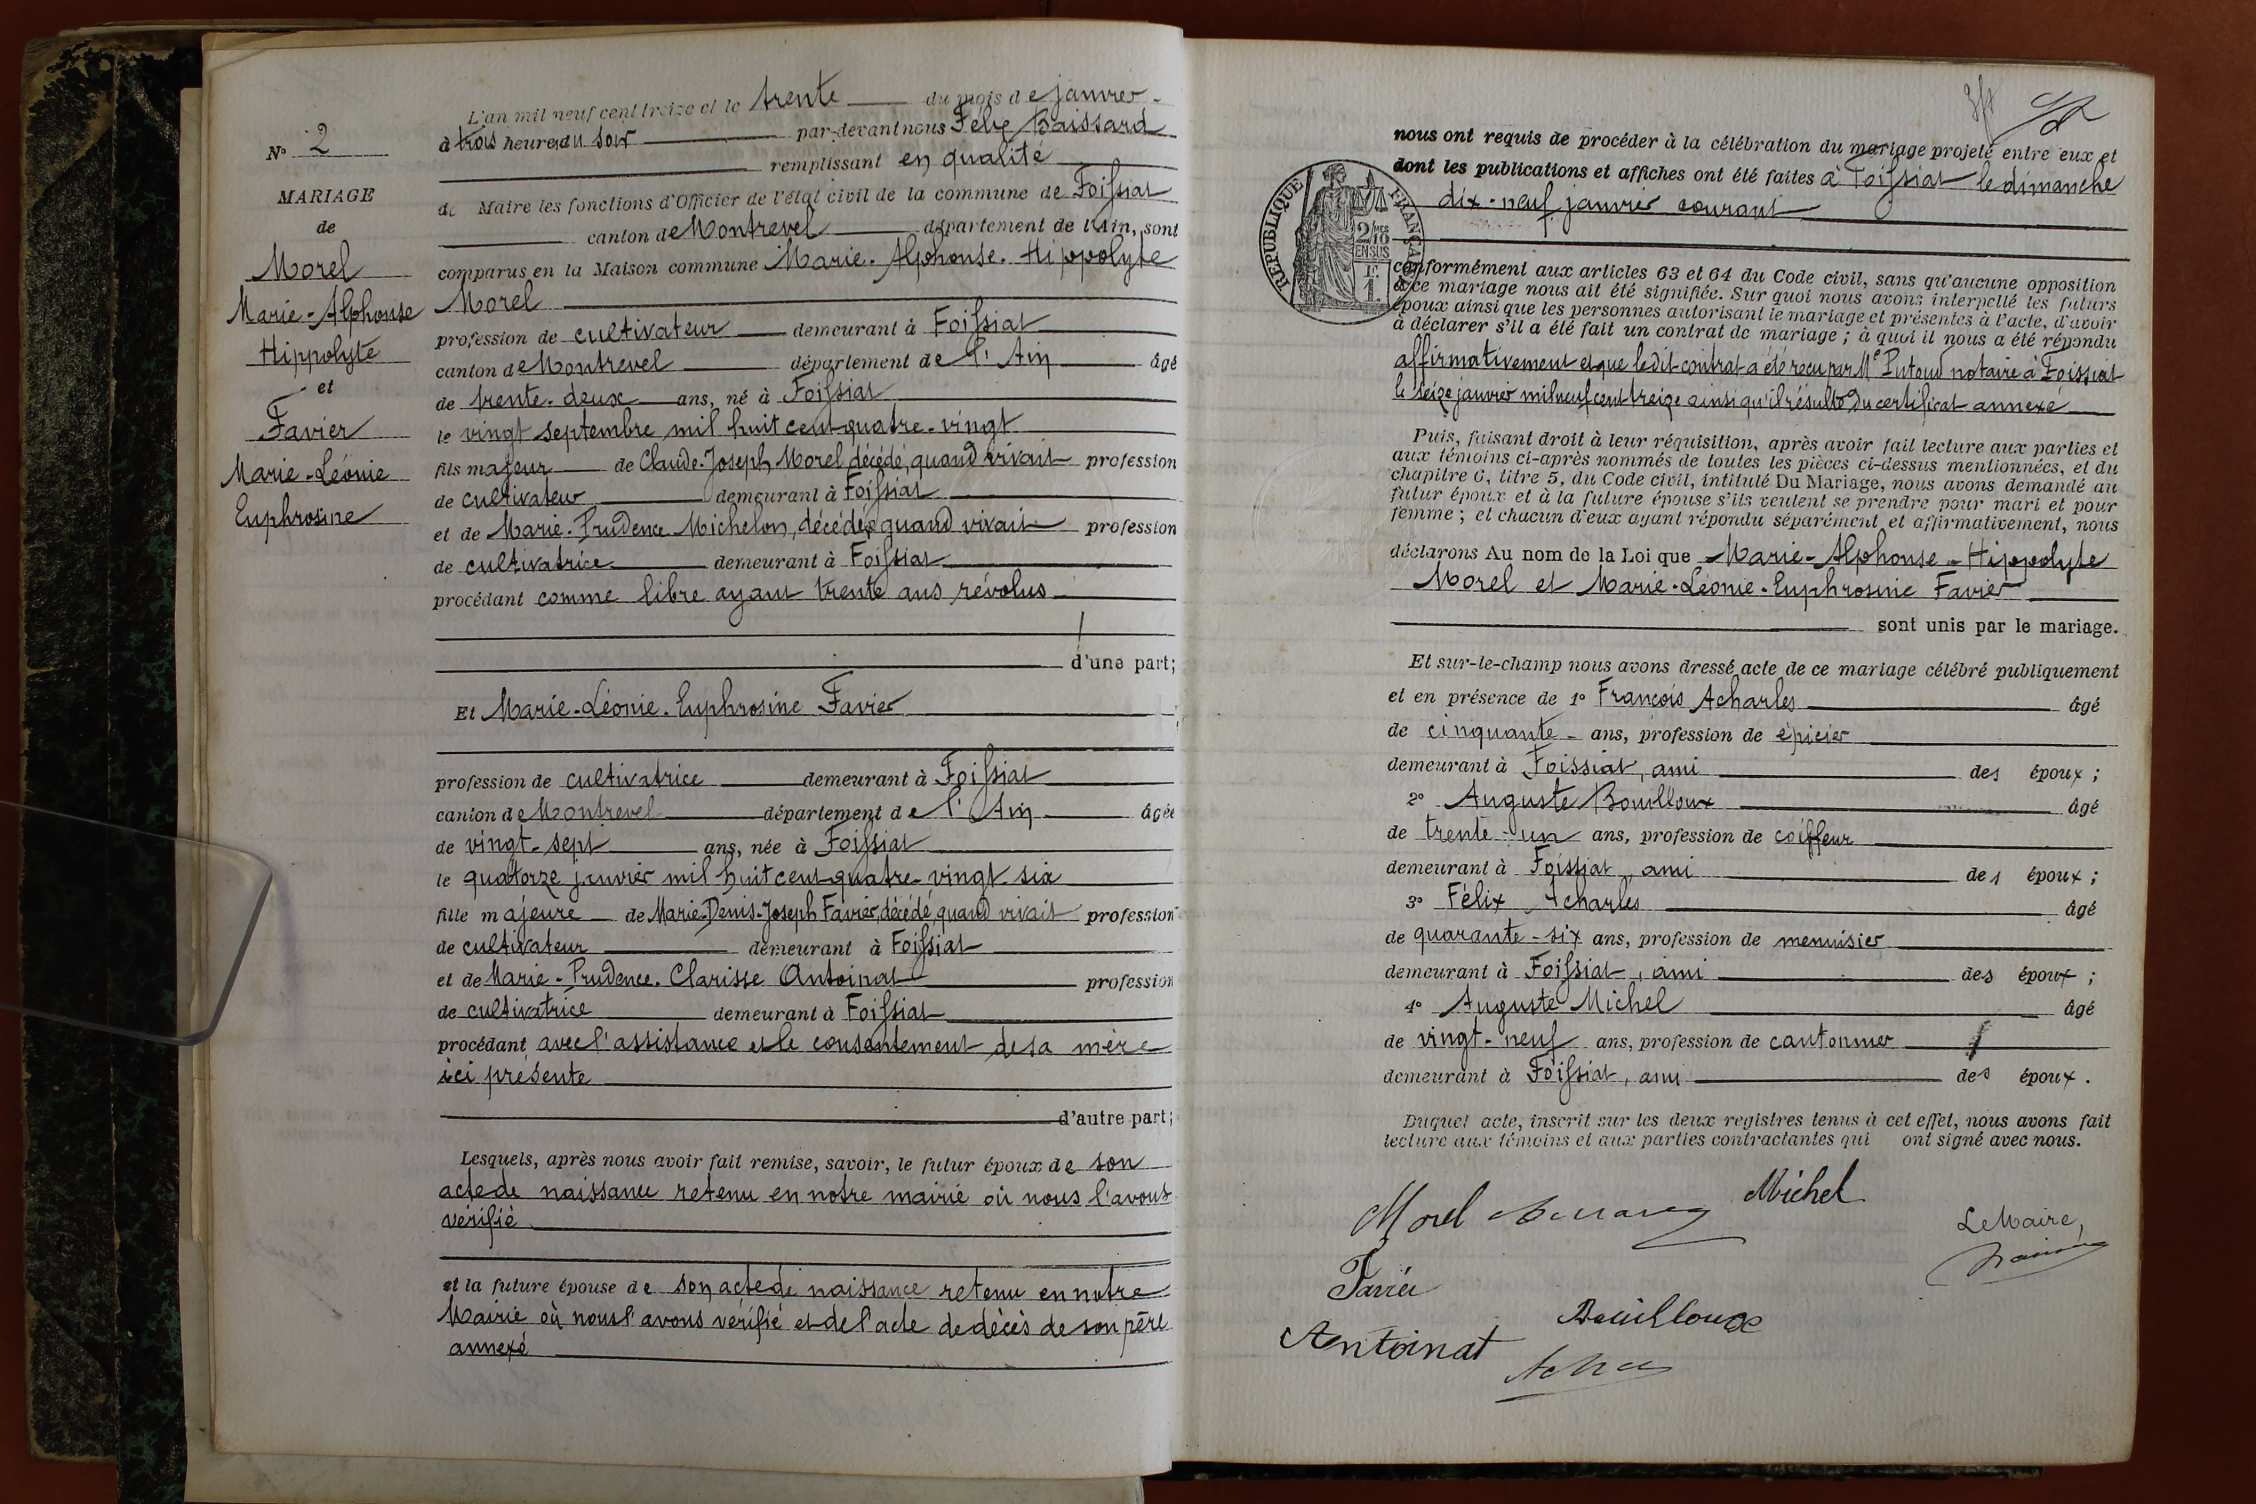 N° 2
MARIAGE
de
Morel
Marie-Alphonse
Hippolyte
et
Favier
Marie-Léonie
Euphrosine
L'an mil neuf cent treize et le trente du mois de janvier
à trois heures du soir par-devant nous Félix
remplissant en qualité
de Maire les fonctions d'Officier de l'état civil de la commune de Foissiat
canton de Montrevel département de l'Ain, sont
comparus en la Maison commune Marie-Alphonse-Hippolyte
Morel
profession de cultivateur demeurant à Foissiat
canton de Montrevel département de l'Ain âgé
de trente-deux ans, né à Foissiat
le vingt septembre mil huit cent quatre-vingt
fils majeur de Claude-Joseph Morel décédé, quand vivait profession
de cultivateur demeurant à Foissiat
et de Marie-Prudence Michelon, décédée quand vivait profession
de cultivatrice demeurant à Foissiat
procédant comme libre ayant trente ans révolus
d'une part;
Et Marie-Léonie-Euphrosine Favier
profession de cultivatrice demeurant à Foissiat
canton de Montrevel département de l'Ain âgée
de vingt-sept ans, née à Foissiat
le quatorze janvier mil huit cent quatre-vingt six
fille majeure de Marie-Denis-Joseph Favier, décédé, quand vivait profession
de cultivateur demeurant à Foissiat
et de Marie-Prudence-Clarisse Antoinat profession
de cultivatrice demeurant à Foissiat
procédant avec l'assistance et le consentement de sa mère
ici présente
d'autre part;
Lesquels, après nous avoir fait remise, savoir, le futur époux de son
acte de naissance retenu en notre mairie où nous l'avons
vérifié
et la future épouse de son acte de naissance retenu en notre
Mairie où nous l'avons vérifié et de l'acte de décès de son père
annexé
nous ont requis de procéder à la célébration du mariage projeté entre eux et
dont les publications et affiches ont été faites à Foissiat le dimanche
dix-neuf janvier courant
REPUBLIQUE FRANÇAISE
2/10 EN SUS
1 F.
conformément aux articles 63 et 64 du Code civil, sans qu'aucune opposition
à ce mariage nous ait été signifiée. Sur quoi nous avons interpellé les futurs
époux ainsi que les personnes autorisant le mariage et présentes à l'acte, d'avoir
à déclarer s'il a été fait un contrat de mariage; à quoi il nous a été répondu
affirmativement et que ledit contrat a été reçu par Me notaire à Foissiat
le seize janvier mil neuf cent treize ainsi qu'il résulte du certificat annexé
Puis, faisant droit à leur réquisition, après avoir fait lecture aux parties et
aux témoins ci-après nommés de toutes les pièces ci-dessus mentionnées, et du
chapitre 6, titre 5, du Code civil, intitulé Du Mariage, nous avons demandé au
futur époux et à la future épouse s'ils veulent se prendre pour mari et pour
femme; et chacun d'eux ayant répondu séparément et affirmativement, nous
déclarons Au nom de la Loi que Marie-Alphonse-Hippolyte
Morel et Marie-Léonie-Euphrosine Favier
sont unis par le mariage.
Et sur-le-champ nous avons dressé acte de ce mariage célébré publiquement
et en présence de 1° François Acharles âgé
de cinquante ans, profession de épicier
demeurant à Foissiat, ami des époux;
2° Auguste Bouilloux âgé
de trente-un ans, profession de coiffeur
demeurant à Foissiat, ami des époux;
3° Félix Acharles âgé
de quarante-six ans, profession de menuisier
demeurant à Foissiat, ami des époux;
4° Auguste Michel âgé
de vingt-neuf ans, profession de cantonnier
demeurant à Foissiat, ami des époux.
Duquel acte, inscrit sur les deux registres tenus à cet effet, nous avons fait
lecture aux témoins et aux parties contractantes qui ont signé avec nous.
Morel Michel
Le Maire,
Favier
Bouilloux
Antoinat